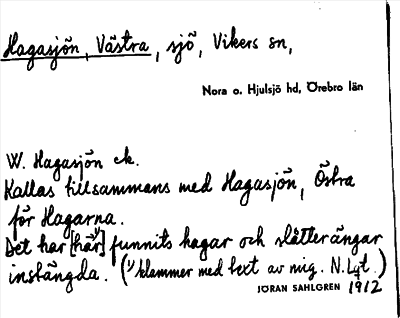 Hagasjön, Västra, sjö, Vikers sn,
Nora o. Hjulsjö hd, Örebro län
W. Hagasjön ek.
Kallas tillsammans med Hagasjön, Östra
för Hagarna.
Det har [här]¹⁾ funnits hagar och slåtterängar
instängda. (¹⁾ klammer med text av mig. N. Lgt.)
JÖRAN SAHLGREN 1912